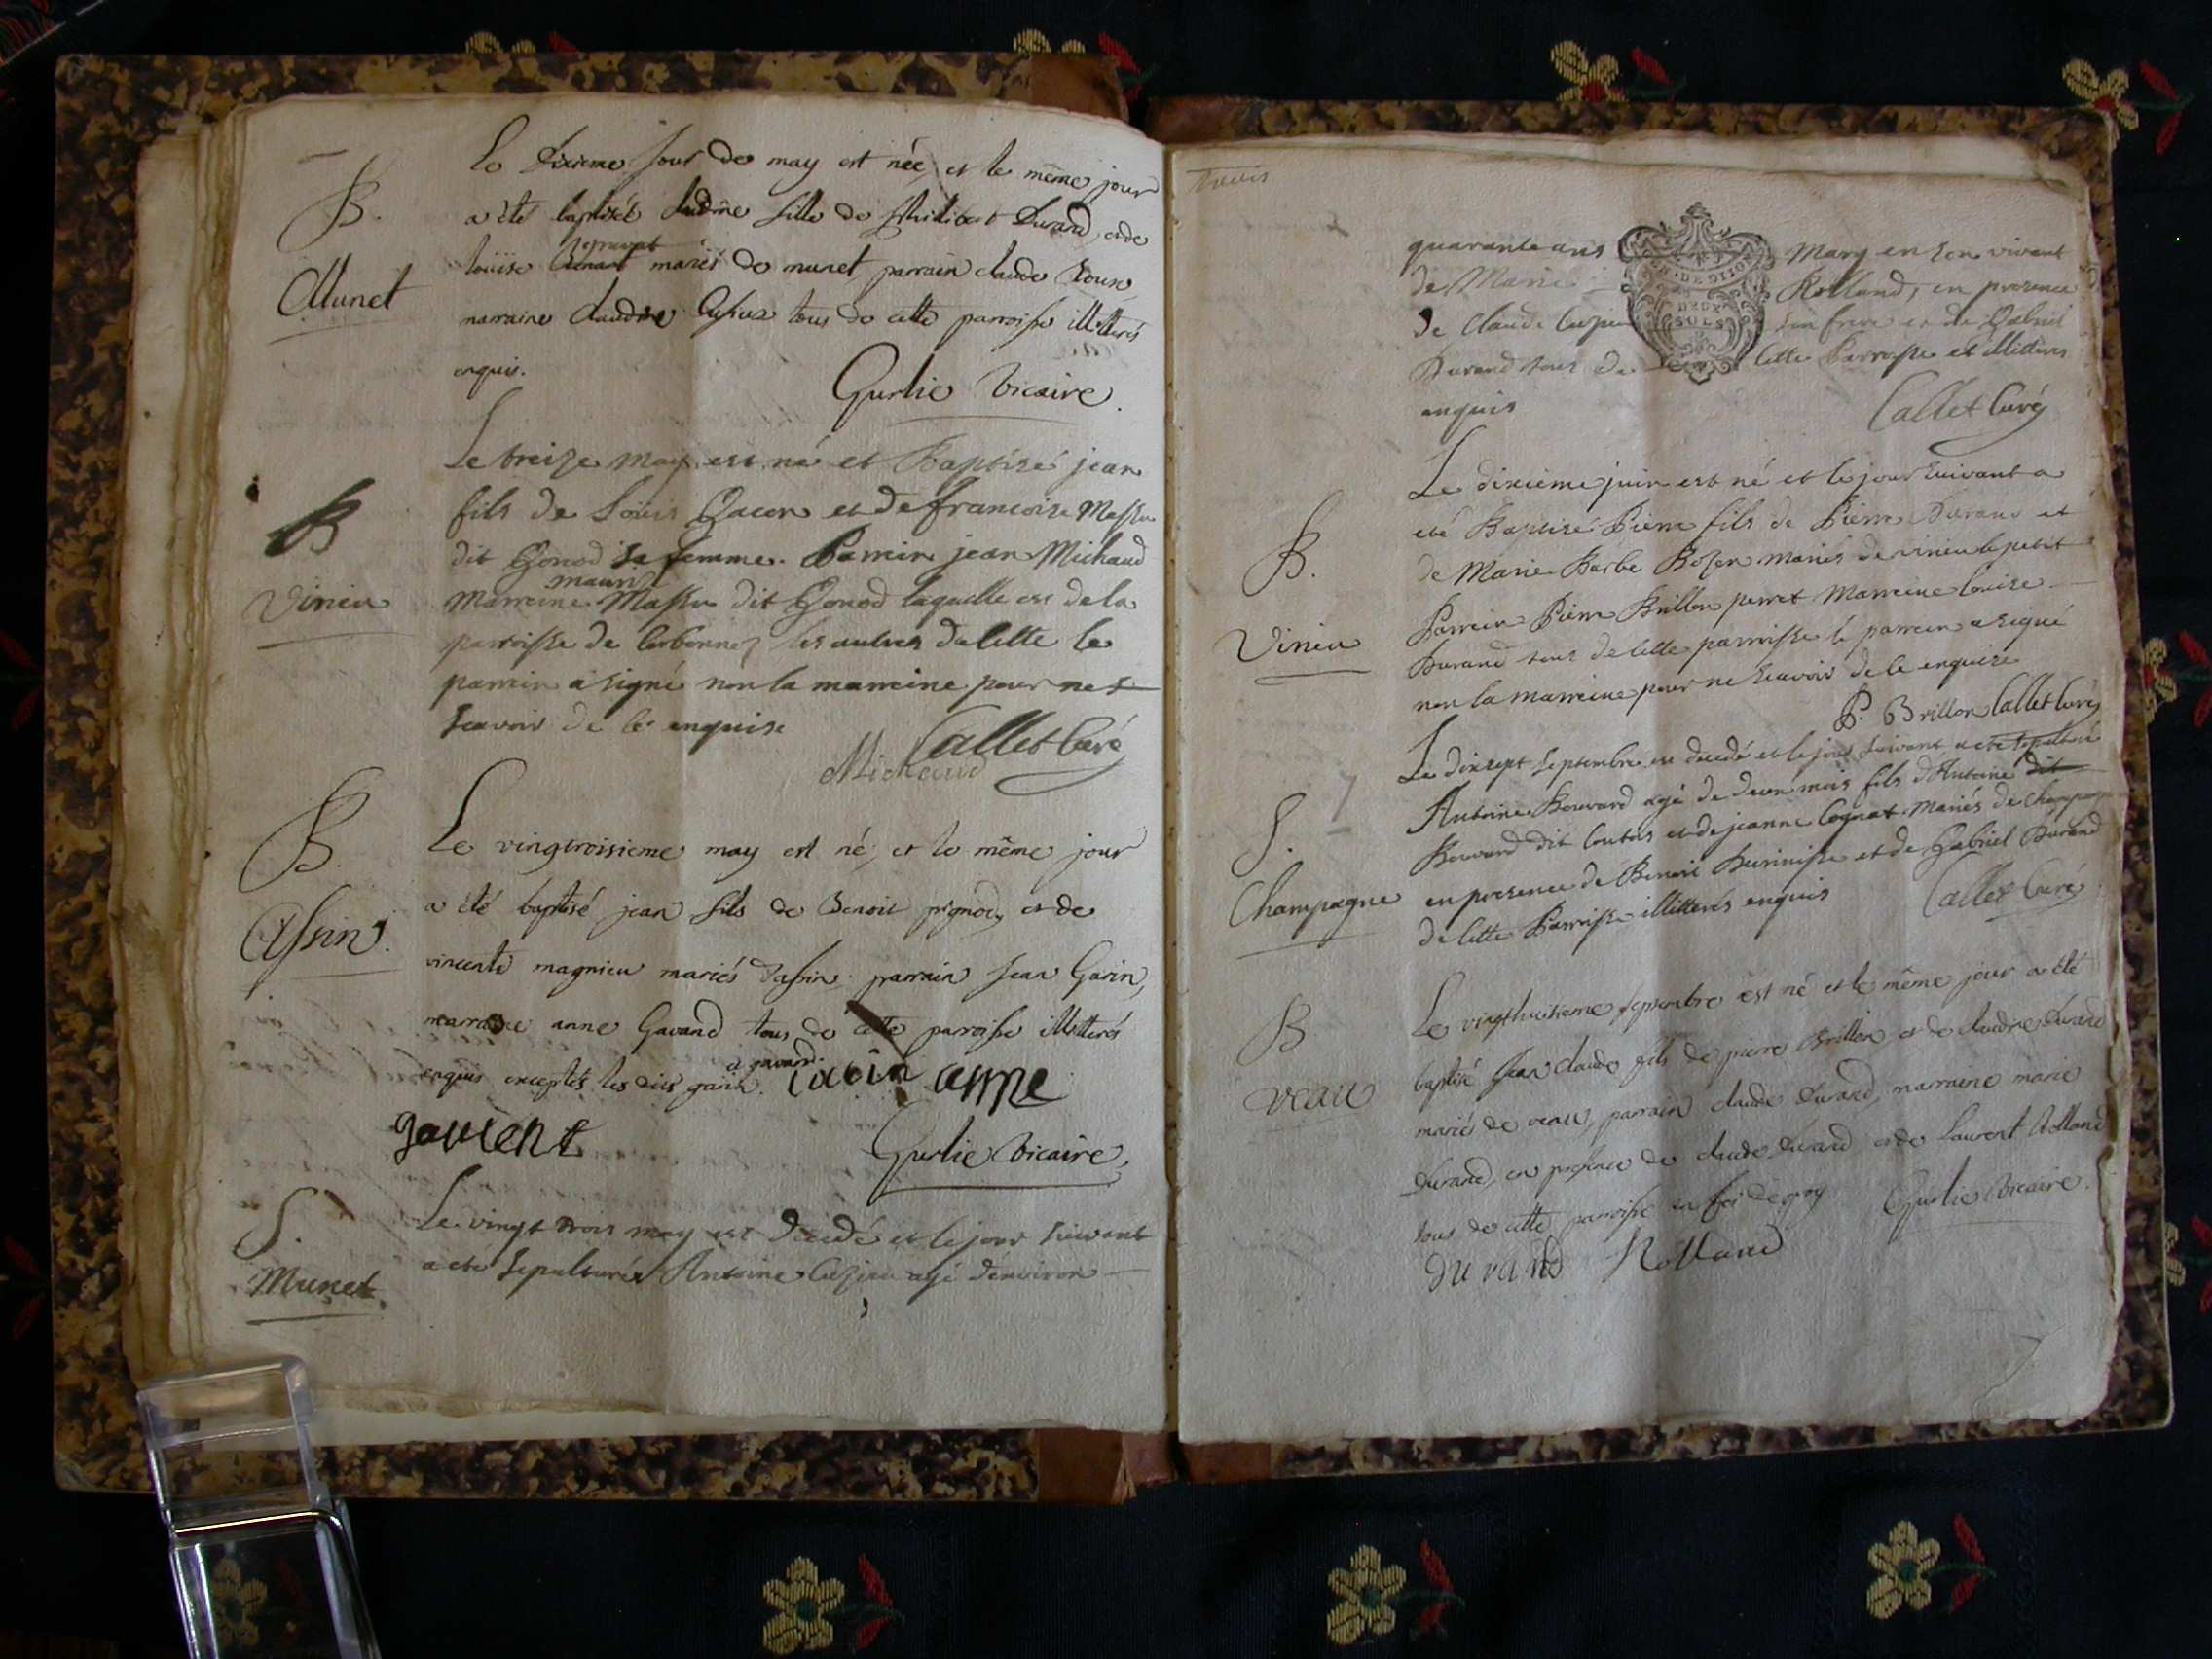 Le dixieme jour de may est née, et le même jour
B.
a été baptisée claudine fille de philibert Durand, et de
louise mariés de munet, parrain claude
Munet
marraine claudine tous de cette parroisse illitterés
enquis.
Gurlie Vicaire.
Le treize may est né et Baptisé jean
fils de Loüis Gacon et de francoise Massu
B
dit Gonod sa femme. Parrein jean Michaud
Virieu
Marreine Massu dit Gonod laquelle est de la
parroisse de les autres de cette le
parrein a signé non la marreine pour ne
scavoir de ce enquise
Michaud Callet Curé
B.
Le vingtroisieme may est né, et le même jour
a été baptisé jean fils de Benoit pignod, et de
Assin.
vincente magnieu mariés d'assin, parrain jean Garin,
marraine anne Gavand tous de cette paroisse illitterés
enquis exceptés les dits garin et gavand.
anne
gavient
Gurlie Vicaire
S.
Munet
Le vingt trois may est decedé et le jour suivant
a eté sepulturé Antoine Cuzieu agé d'environ
trois
quarante ans Mary en son vivant
DE DIJON
DEUX
SOLS
de Marie Rolland, en presence
de Claude Cuzieu son frere et de Gabriel
Durand tous de cette Parroisse et illitteres
enquis
Callet Curé
Le dixième juin est né et le jour suivant a
eté Baptisé Pierre fils de Pierre Durand et
B.
de Marie Barbe Bozon mariés de virieu le petit
Virieu
Parrein Pierre Brillon perret Marreine louise
Durand tous de cette parroisse le parrein a signé
non la marreine pour ne scavoir de ce enquise
P. Brillon Callet Curé
Le dixsept septembre est decedé et le jour suivant a eté sepulturé
S. 7
Antoine Bouvard agé de deux mois fils d'Antoine dit
Bouvard dit et de jeanne Cognat mariés de champagne
Champagne
en presence de Benoit et de Gabriel Durand
de cette Parroisse illitterés enquis
Callet Curé
B
Le vingthuitieme septembre est né et le même jour a été
baptisé jean claude fils de pierre Brillon et de claudine Durand
veau
mariés de veau, parrain claude Durand, marraine marie
Durand, en presence de claude Durand et de Laurent Rolland
tous de cette parroisse en foi de quoy
Gurlie Vicaire.
durand Rolland